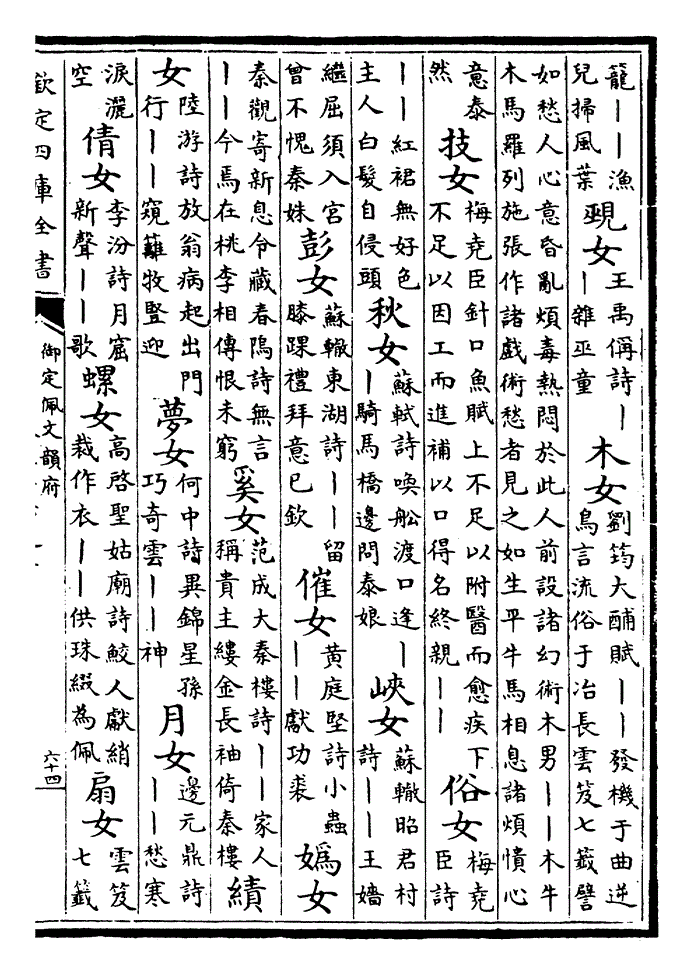 籠——漁兒掃風葉 覡女 王禹偁詩——雜巫童 木女 劉筠大酺賦——發機于曲逆鳥言流俗于冶長雲笈七籤譬
如愁人心意昏亂煩毒熱悶於此人前設諸幻術木男——木牛木馬羅列施張作諸戲術愁者見之如生平牛馬相息諸煩憒心
意泰然 技女 梅堯臣針口魚賦上不足以附醫而愈疾下不足以因工而進補以口得名終親—— 俗女 梅堯臣詩
——紅裙無好色主人白髮自侵頭 秋女 蘇軾詩喚船渡口逢——騎馬橋邊問泰娘 峽女 蘇轍昭君村詩——王嬙
繼屈須入宮曾不愧秦姝 彭女 蘇轍東湖詩——留膝踝禮拜意已欽 催女 黃庭堅詩小蟲——獻功裘 媯女
秦觀寄新息令藏春隖詩無言——今焉在桃李相傳恨未窮 奚女 范成大秦樓詩——家人稱貴主縷金長袖倚秦樓 績
女 陸游詩放翁病起出門行——窺籬牧豎迎 夢女 何中詩異錦星孫巧奇雲——神 月女 邊元鼎詩——愁寒
淚灑空 倩女 李汾詩月窟新聲——歌 螺女 高啓聖姑廟詩鮫人獻綃裁作衣——供珠綴為佩 扇女 雲笈七籤
欽定四庫全書
御定佩文韻府
六十四